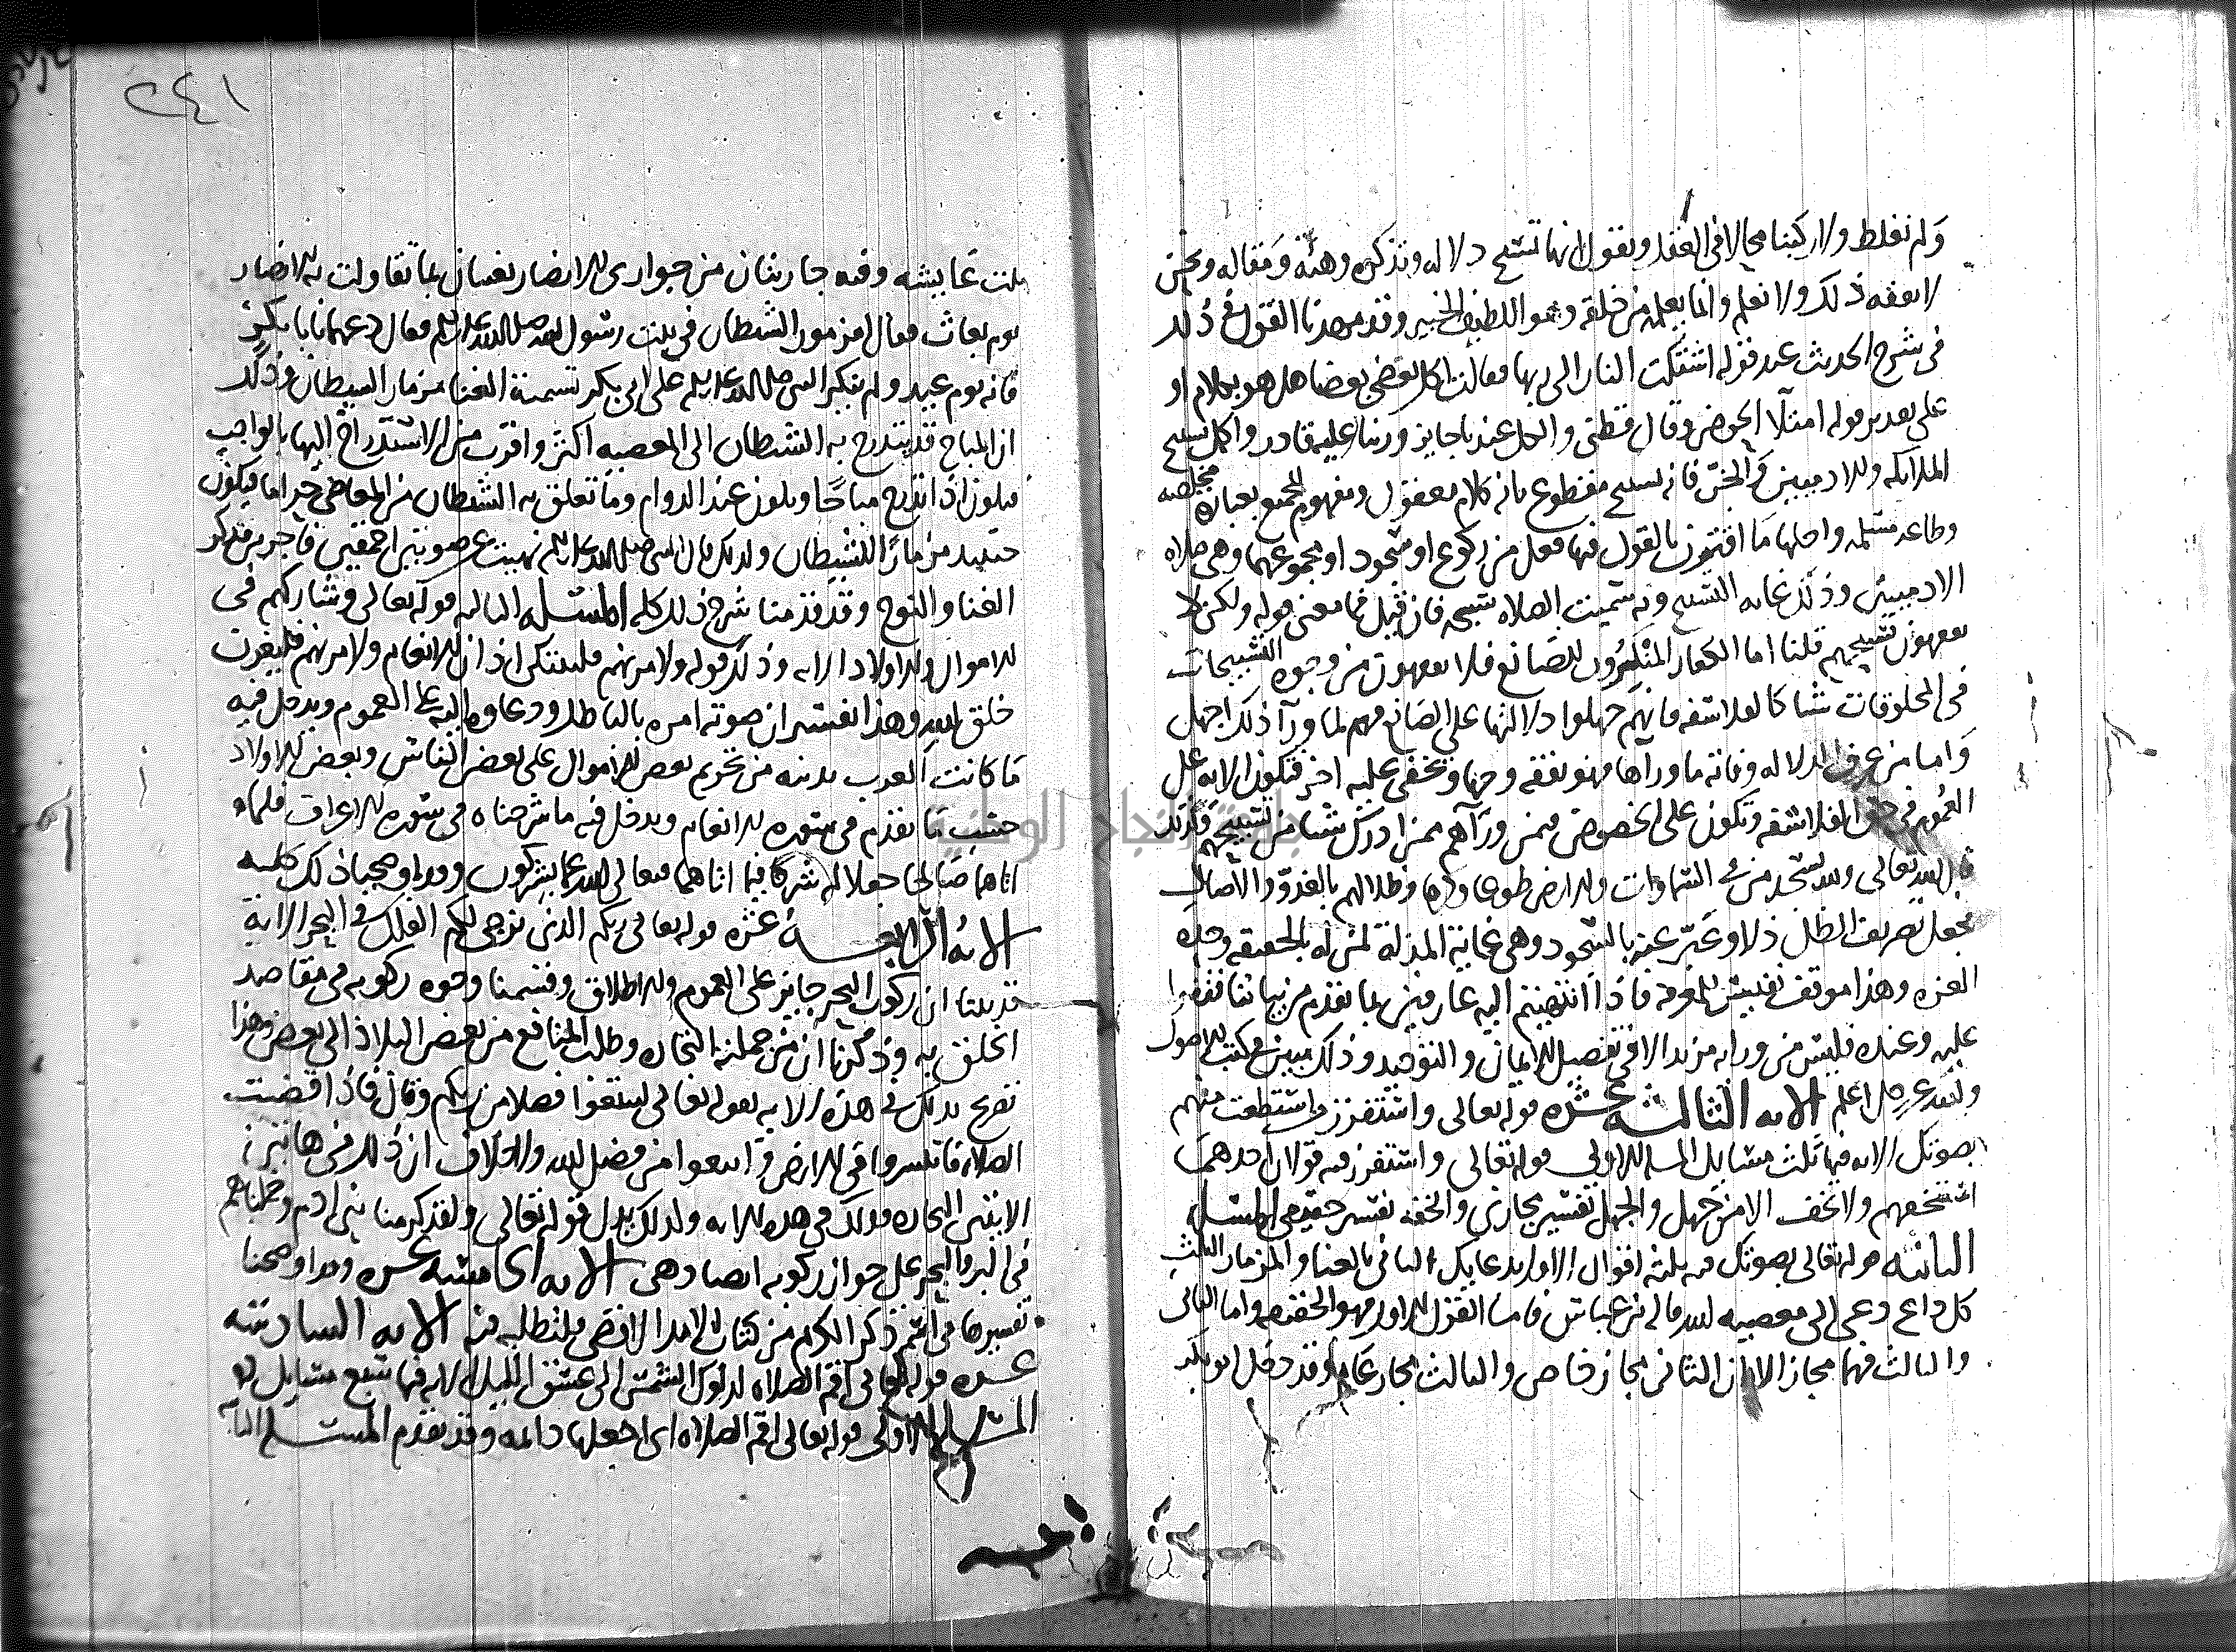 ولم نغلط ولا ركبنا محالا في العقد ونقول انها تسبح دلالة وتذكرة وهيئة ومقالة ونحن
لا نفقه ذلك ولا نعلم وانما يعلم من خلقه وهو اللطيف الخبير وقد مهدنا القول في ذلك
في شرح الحديث عند قوله اشتكت النار الى ربها فقالت اكل بعضي بعضا هل هو بكلام او
على تقدير قوله امتلا الحوض وقال قطني والكل عندنا جايز وربنا عليه قادر واكل تسبيح
الملايكة والادميين والجن فانه تسبيح مقطوع بانه كلام معقول ومفهوم للجميع بعبارة مخلصة
وطاعة مسلمة واجلها ما اقترن بالقول فيها فعل من ركوع او سجود او مجموعهما وهي صلاة
الادميين وذلك غاية التسبيح وبه سميت الصلاة سبحة فان قيل فما معنى قوله ولكن لا
تفقهون تسبيحهم قلنا اما الكفار المنكرون للصانع فلا يفقهون من وجوه التسبيحات
في المخلوقات شيا كالفلاسفة فانهم جهلوا دلالتها على الصانع فهم لما ورآ ذلك اجهل
واما من عرف الدلالة وفاته ما ورآها فهو يفقه وجها ويخفى عليه اخر فتكون الاية على
العموم في حق الفلاسفة وتكون على الخصوص فيمن ورآهم ممن ادرك شيا من تسبيحهم ولذلك
قال الله تعالى ولله يسجد من في السماوات والارض طوعا وكرها وظلالهم بالغدو والاصال
فجعل تصريف الظل ذلا وعبر عنه بالسجود وهي غاية المذلة لمن له بالحقيقة وحده
العزة وهذا موقف نفيس للمعرفة فاذا انتهيتم اليه عارفين بما تقدم من بياننا فقفوا
عليه وعنده فليس من ورايه مزيد الا في تفصيل الايمان والتوحيد وذلك مبين في كتب الاصول
والله عز وجل اعلم الاية الثالثة عشرة قوله تعالى واستفزز من استطعت منهم
بصوتك الاية فيها ثلث مسايل المسلة الاولى قوله تعالى واستفزز فيه قولان احدهما
استخفهم ولا يخف الا من جهل والجهل تفسير مجازي والخفة تفسير حقيقي المسلة
الثانية قوله تعالى بصوتك فيه ثلثة اقوال الاول بدعايك الثاني بالغنا والمزمار الثالث
كل داع دعى الى معصية الله قاله ابن عباس فاما القول الاول فهو الحقيقة واما الثاني
والثالث فهما مجاز الا ان الثاني مجاز خاص والثالث مجاز عام وقد دخل ابو بكر
٢٤١
بيت عايشة وفيه جاريتان من جواري الانصار تغنيان بما تقاولت به الانصار
يوم بعاث فقال امزمور الشيطان في بيت رسول الله صلى الله عليه وسلم فقال دعهما يابا بكر
فانه يوم عيد ولم ينكر النبي صلى الله عليه وسلم على ابي بكر تسمية الغنا مزمار الشيطان وذلك
ان المباح قد يستدرج به الشيطان الى المعصية اكثر واقرب من الاستدراج اليها بالواجب
فيكون اذا مباحا ويكون عند الدوام وما تعلق به الشيطان من المعاصي حراما فيكون
حينيذ مزمارا للشيطان ولذلك قال النبي صلى الله عليه وسلم نهيت عن صوتين احمقين فاجرين فذكر
الغنا والنوح وقد قدمنا شرح ذلك كله المسلة الثالثة قوله تعالى وشاركهم في
الاموال والاولاد الاية وذلك قوله ولامرنهم فليبتكن اذان الانعام ولامرنهم فليغيرن
خلق الله وهذا تفسير ان صوته امره بالباطل ودعاوه اليه على العموم ويدخل فيه
ما كانت العرب تدينه من تحريم بعض الاموال على بعض الناس وبعض الاولاد
حسب ما تقدم في سورة الانعام ويدخل فيه ما شرحناه في سورة الاعراف فلما
اتاهما صالحا جعلا له شركا فيما اتاهما فتعالى الله عما يشركون وقد اوضحنا ذلك كله
الاية الرابعة عشرة قوله تعالى ربكم الذي يزجي لكم الفلك في البحر الاية
قد بينا ان ركوب البحر جايز على العموم والاطلاق وقسمنا وجوه ركوبه في مقاصد
الخلق به وذكرنا ان من جملته التجارة وطلب المنافع من بعض البلاد الى بعض وهذا
تصريح بذلك في هذه الاية بقوله تعالى لتبتغوا فضلا من ربكم وقال فاذا قضيت
الصلاة فانتشروا في الارض وابتغوا من فضل الله ولا خلاف ان ذلك في هاتين
الايتين التجارة فذلك في هذه الاية وكذلك يدل قوله تعالى ولقد كرمنا بني ادم وحملناهم
في البر والبحر على جواز ركوبه ايضا وهي الاية الخامسة عشرة وقد اوضحنا
تفسيرها في اسم ذكر الكرم من كتاب الامد الاقصى فليطلب فيه الاية السادسة
عشرة قوله تعالى اقم الصلاة لدلوك الشمس الى غسق الليل الاية فيها سبع مسايل
المسلة الاولى قوله تعالى اقم الصلاة اي اجعلها دايمة وقد تقدم المسلة الثانية